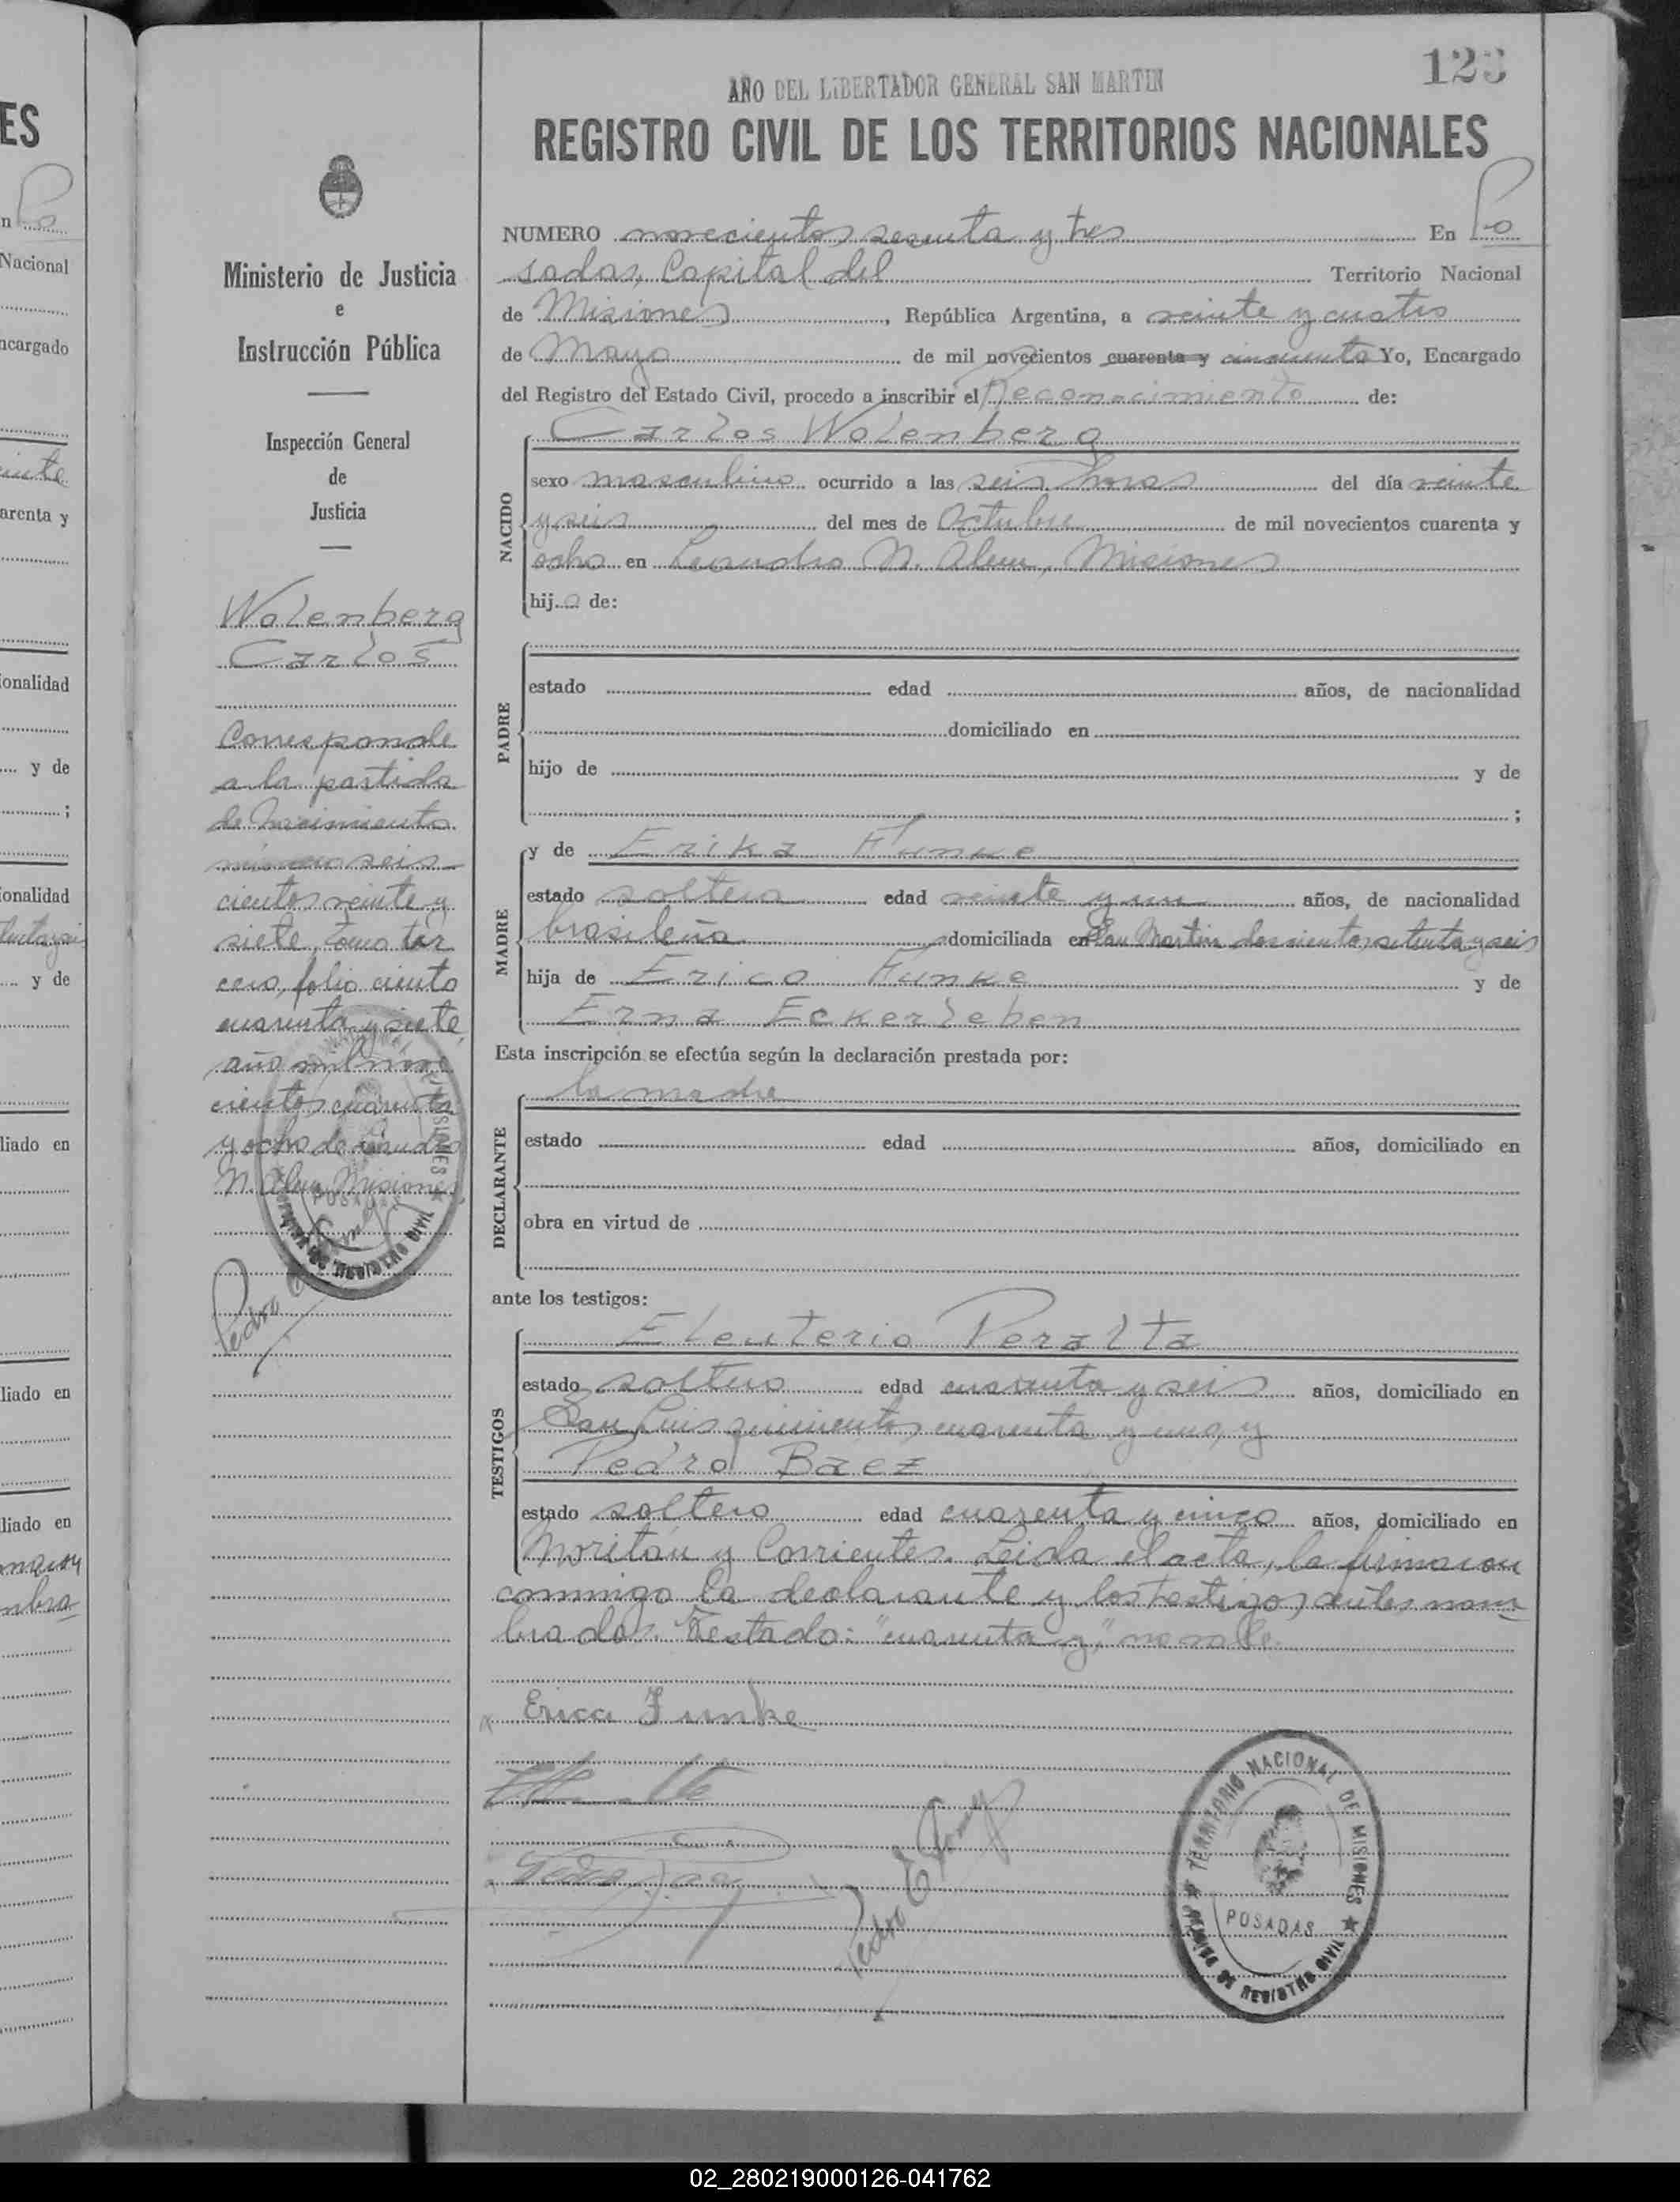 ES
n Po
Nacional
ncargado
einte
arenta y
ionalidad
y de
;
ionalidad
y de
liado en
liado en
liado en
Ministerio de Justicia
e
Instrucción Pública
Inspección General
de
Justicia
Wolenberg
Carlos
Corresponde
a la partida
de Nacimiento
número seis-
cientos veinte y
siete, tomo ter
cero, folio ciento
cuarenta y siete,
año mil nove
cientos cuarenta
y ocho de Leandro
N. Alem, Misiones
Pedro
123
AÑO DEL LIBERTADOR GENERAL SAN MARTIN
REGISTRO CIVIL DE LOS TERRITORIOS NACIONALES
NUMERO novecientos sesenta y tres En Po
sadas, Capital del Territorio Nacional
de Misiones, República Argentina, a veinte y cuatro
de Mayo de mil novecientos cuarenta y cincuenta Yo, Encargado
del Registro del Estado Civil, procedo a inscribir el Reconocimiento de:
Carlos Wolenberg
NACIDO
sexo masculino ocurrido a las seis horas del día veinte
y seis del mes de Octubre de mil novecientos cuarenta y
ocho en Leandro N. Alem, Misiones
hijo de:
PADRE
estado edad años, de nacionalidad
domiciliado en
hijo de y de
;
MADRE
y de Erika Funke
estado soltera edad veinte y un años, de nacionalidad
brasileña domiciliada en San Martin doscientos setenta y seis
hija de Erico Funke y de
Erna Eckerleben
Esta inscripción se efectúa según la declaración prestada por:
DECLARANTE
la madre
estado edad años, domiciliado en
obra en virtud de
ante los testigos:
TESTIGOS
Eleuterio Peralta
estado soltero edad cuarenta y seis años, domiciliado en
San Luis quinientos cuarenta y uno, y
Pedro Baez
estado soltero edad cuarenta y cinco años, domiciliado en
Moritán y Corrientes. Leida el acta, la firmaron
conmigo la declarante y los testigos antes nom-
brados. Testado: "cuarenta y," no vale.
Erica Funke
Pedro E
TERRITORIO NACIONAL DE MISIONES
POSADAS
OFICINA DE REGISTRO CIVIL
02_280219000126-041762